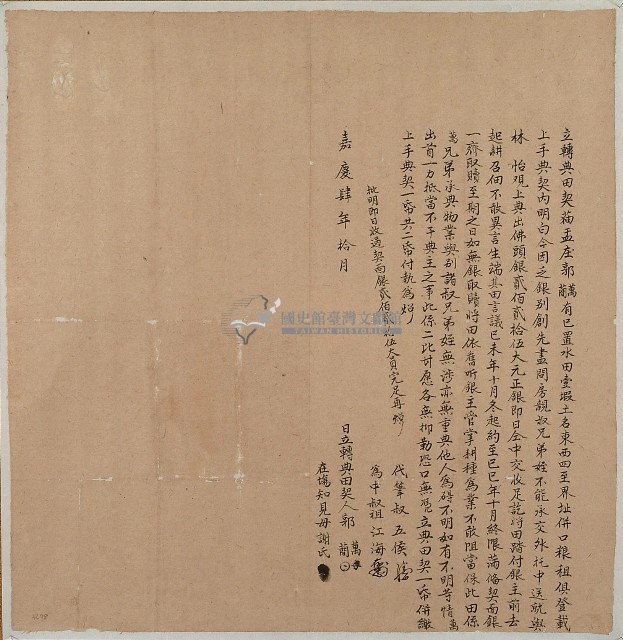 立轉典田契菇盂庄郭萬蘭有已置水田壹塅土名東西四至界址併口粮租俱登載
上手典契內明白今因乏銀別創先盡問房親叔兄弟姪不能承交外托中送就與
林怡觀上典出佛頭銀貳佰貳拾伍大元正銀即日仝中交收足訖將田踏付銀主前去
起耕召佃不敢異言生端其田言議已未年十月冬起約至已巳年十月終限滿俻契面銀
一齊取贖至期之日如無銀取贖將田依舊听銀主管掌耕種為業不敢阻當保此田係
萬兄弟承典物業與別諸叔兄弟姪無涉亦無重典他人為碍不明如有不明等情萬
出首一力抵當不干典主之事此係二比甘愿各無抑勒恐口無憑立典田契一帋併繳
上手典契一帋共二帋付執為炤
批明即日收過契面銀貳佰貳拾伍大員完足再炤
代筆叔五侯
為中叔祖江海
嘉慶肆年拾月 日立轉典田契人郭萬蘭
在塲知見母謝氏
國史館臺灣文獻館
TAIWAN HISTORICA